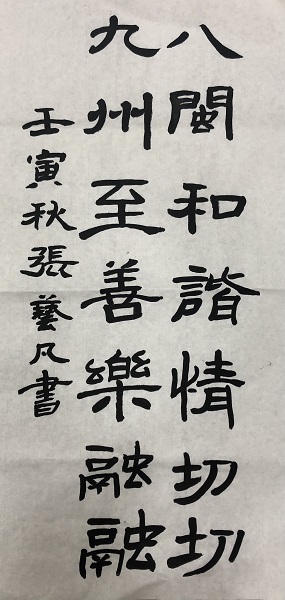 八閩和諧情切切
九州至善樂融融
壬寅秋張藝凡書